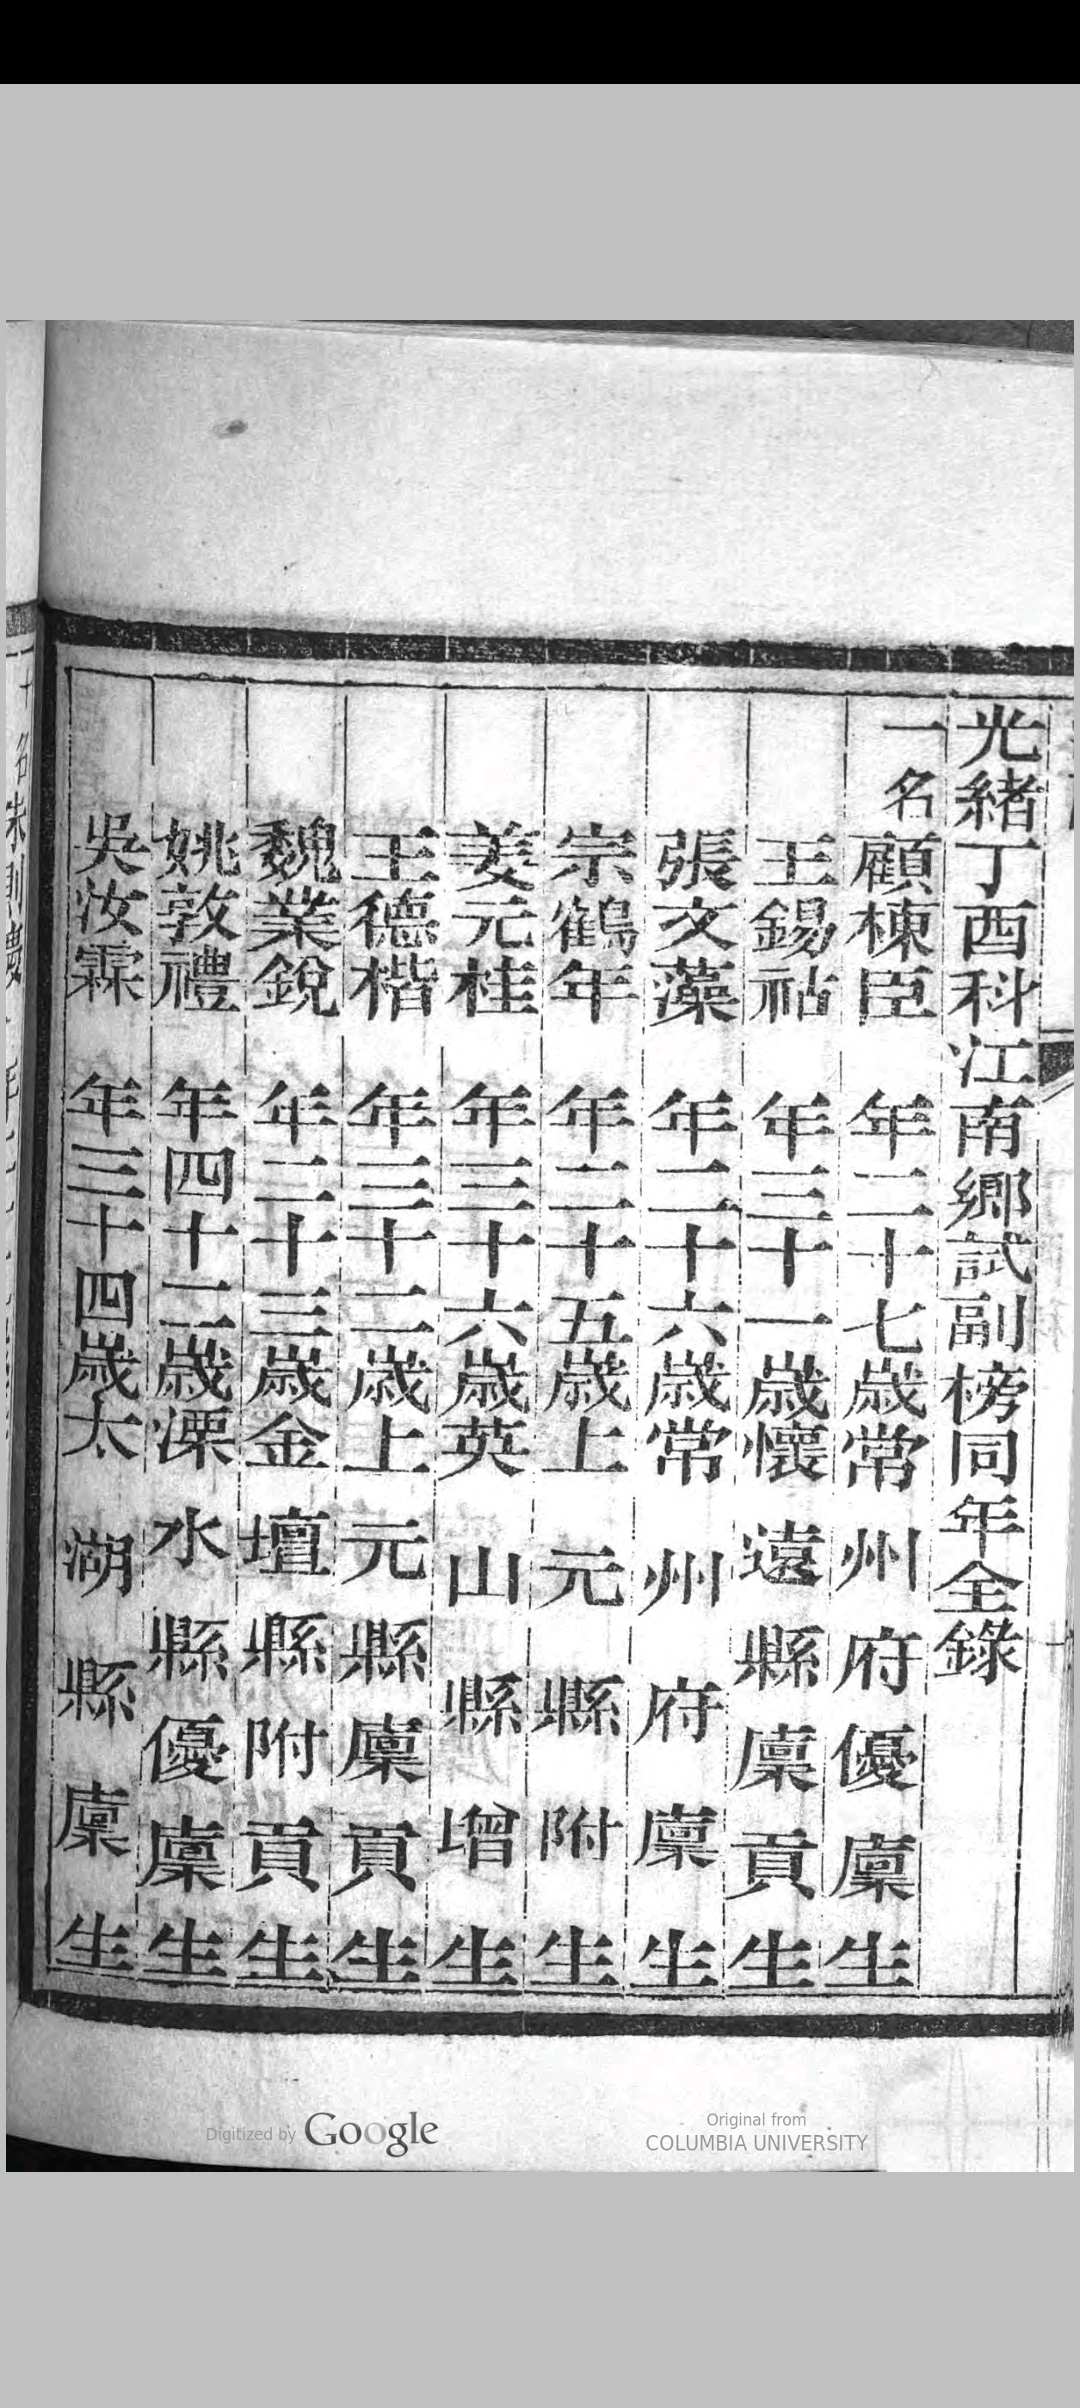 光緒丁酉科江南鄉試副榜同年全錄
一名顧棟臣 年二十七歲常州府優廩生
王錫祜 年三十一歲懷遠縣廩貢生
張文藻 年二十六歲常州府廩生
宗鶴年 年二十五歲上元縣附生
姜元桂 年三十六歲英山縣增生
王德楷 年三十二歲上元縣廩貢生
魏業銳 年二十三歲金壇縣附貢生
姚敦禮 年四十二歲溧水縣優廩生
吳汝霖 年三十四歲太湖縣廩生
Digitized by Google
Original from
COLUMBIA UNIVERSITY